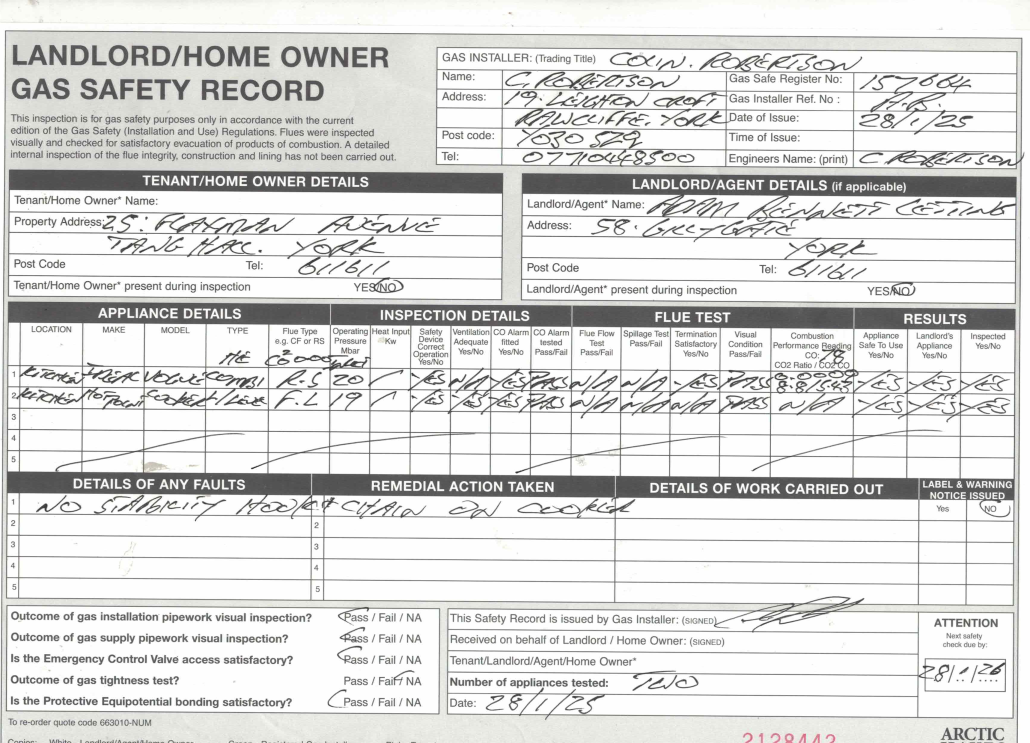 LANDLORD/HOME OWNER
GAS SAFETY RECORD
This inspection is for gas safety purposes only in accordance with the current
edition of the Gas Safety (Installation and Use) Regulations. Flues were inspected
visually and checked for satisfactory evacuation of products of combustion. A detailed
internal inspection of the flue integrity, construction and lining has not been carried out.
GAS INSTALLER: (Trading Title) COLIN. ROBERTSON
Name: C. ROBERTSON
Gas Safe Register No: 157664
Address: 19. LEIGHTON CROFT
Gas Installer Ref. No :
RAWCLIFFE. YORK
Date of Issue: 28/1/25
Post code: YO30 5ZQ
Time of Issue:
Tel: 07710448500
Engineers Name: (print) C ROBERTSON
TENANT/HOME OWNER DETAILS
Tenant/Home Owner* Name:
Property Address: 25. FLAXMAN AVENUE
TANG HALL. YORK
Post Code Tel: 611611
Tenant/Home Owner* present during inspection YES/NO
LANDLORD/AGENT DETAILS (if applicable)
Landlord/Agent* Name: ADAM BENNETT LETTING
Address: 58. GILLYGATE
YORK
Post Code Tel: 611611
Landlord/Agent* present during inspection YES/NO
APPLIANCE DETAILS INSPECTION DETAILS FLUE TEST RESULTS
LOCATION MAKE MODEL TYPE Flue Type e.g. CF or RS Operating Pressure Mbar Heat Input Kw Safety Device Correct Operation Yes/No Ventilation Adequate Yes/No CO Alarm fitted Yes/No CO Alarm tested Pass/Fail Flue Flow Test Pass/Fail Spillage Test Pass/Fail Termination Satisfactory Yes/No Visual Condition Pass/Fail Combustion Performance Reading CO: CO2 Ratio / CO2 CO Appliance Safe To Use Yes/No Landlord's Appliance Yes/No Inspected Yes/No
1 KITCHEN IDEAL VOGUE COMBI R.S 20 YES N/A YES PASS N/A N/A YES PASS YES YES YES
2 KITCHEN HOTPOINT COOKER F.L 19 YES YES YES PASS N/A N/A YES PASS N/A YES YES YES
3
4
5
DETAILS OF ANY FAULTS REMEDIAL ACTION TAKEN DETAILS OF WORK CARRIED OUT LABEL & WARNING NOTICE ISSUED
1 NO STABILITY HOOK & CHAIN ON COOKER Yes NO
2 2
3 3
4 4
5 5
Outcome of gas installation pipework visual inspection? Pass / Fail / NA
Outcome of gas supply pipework visual inspection? Pass / Fail / NA
Is the Emergency Control Valve access satisfactory? Pass / Fail / NA
Outcome of gas tightness test? Pass / Fail / NA
Is the Protective Equipotential bonding satisfactory? Pass / Fail / NA
This Safety Record is issued by Gas Installer: (SIGNED)
Received on behalf of Landlord / Home Owner: (SIGNED)
Tenant/Landlord/Agent/Home Owner*
Number of appliances tested: TWO
Date: 28/1/25
ATTENTION
Next safety
check due by:
28/1/26
To re-order quote code 663010-NUM
2128442
ARCTIC